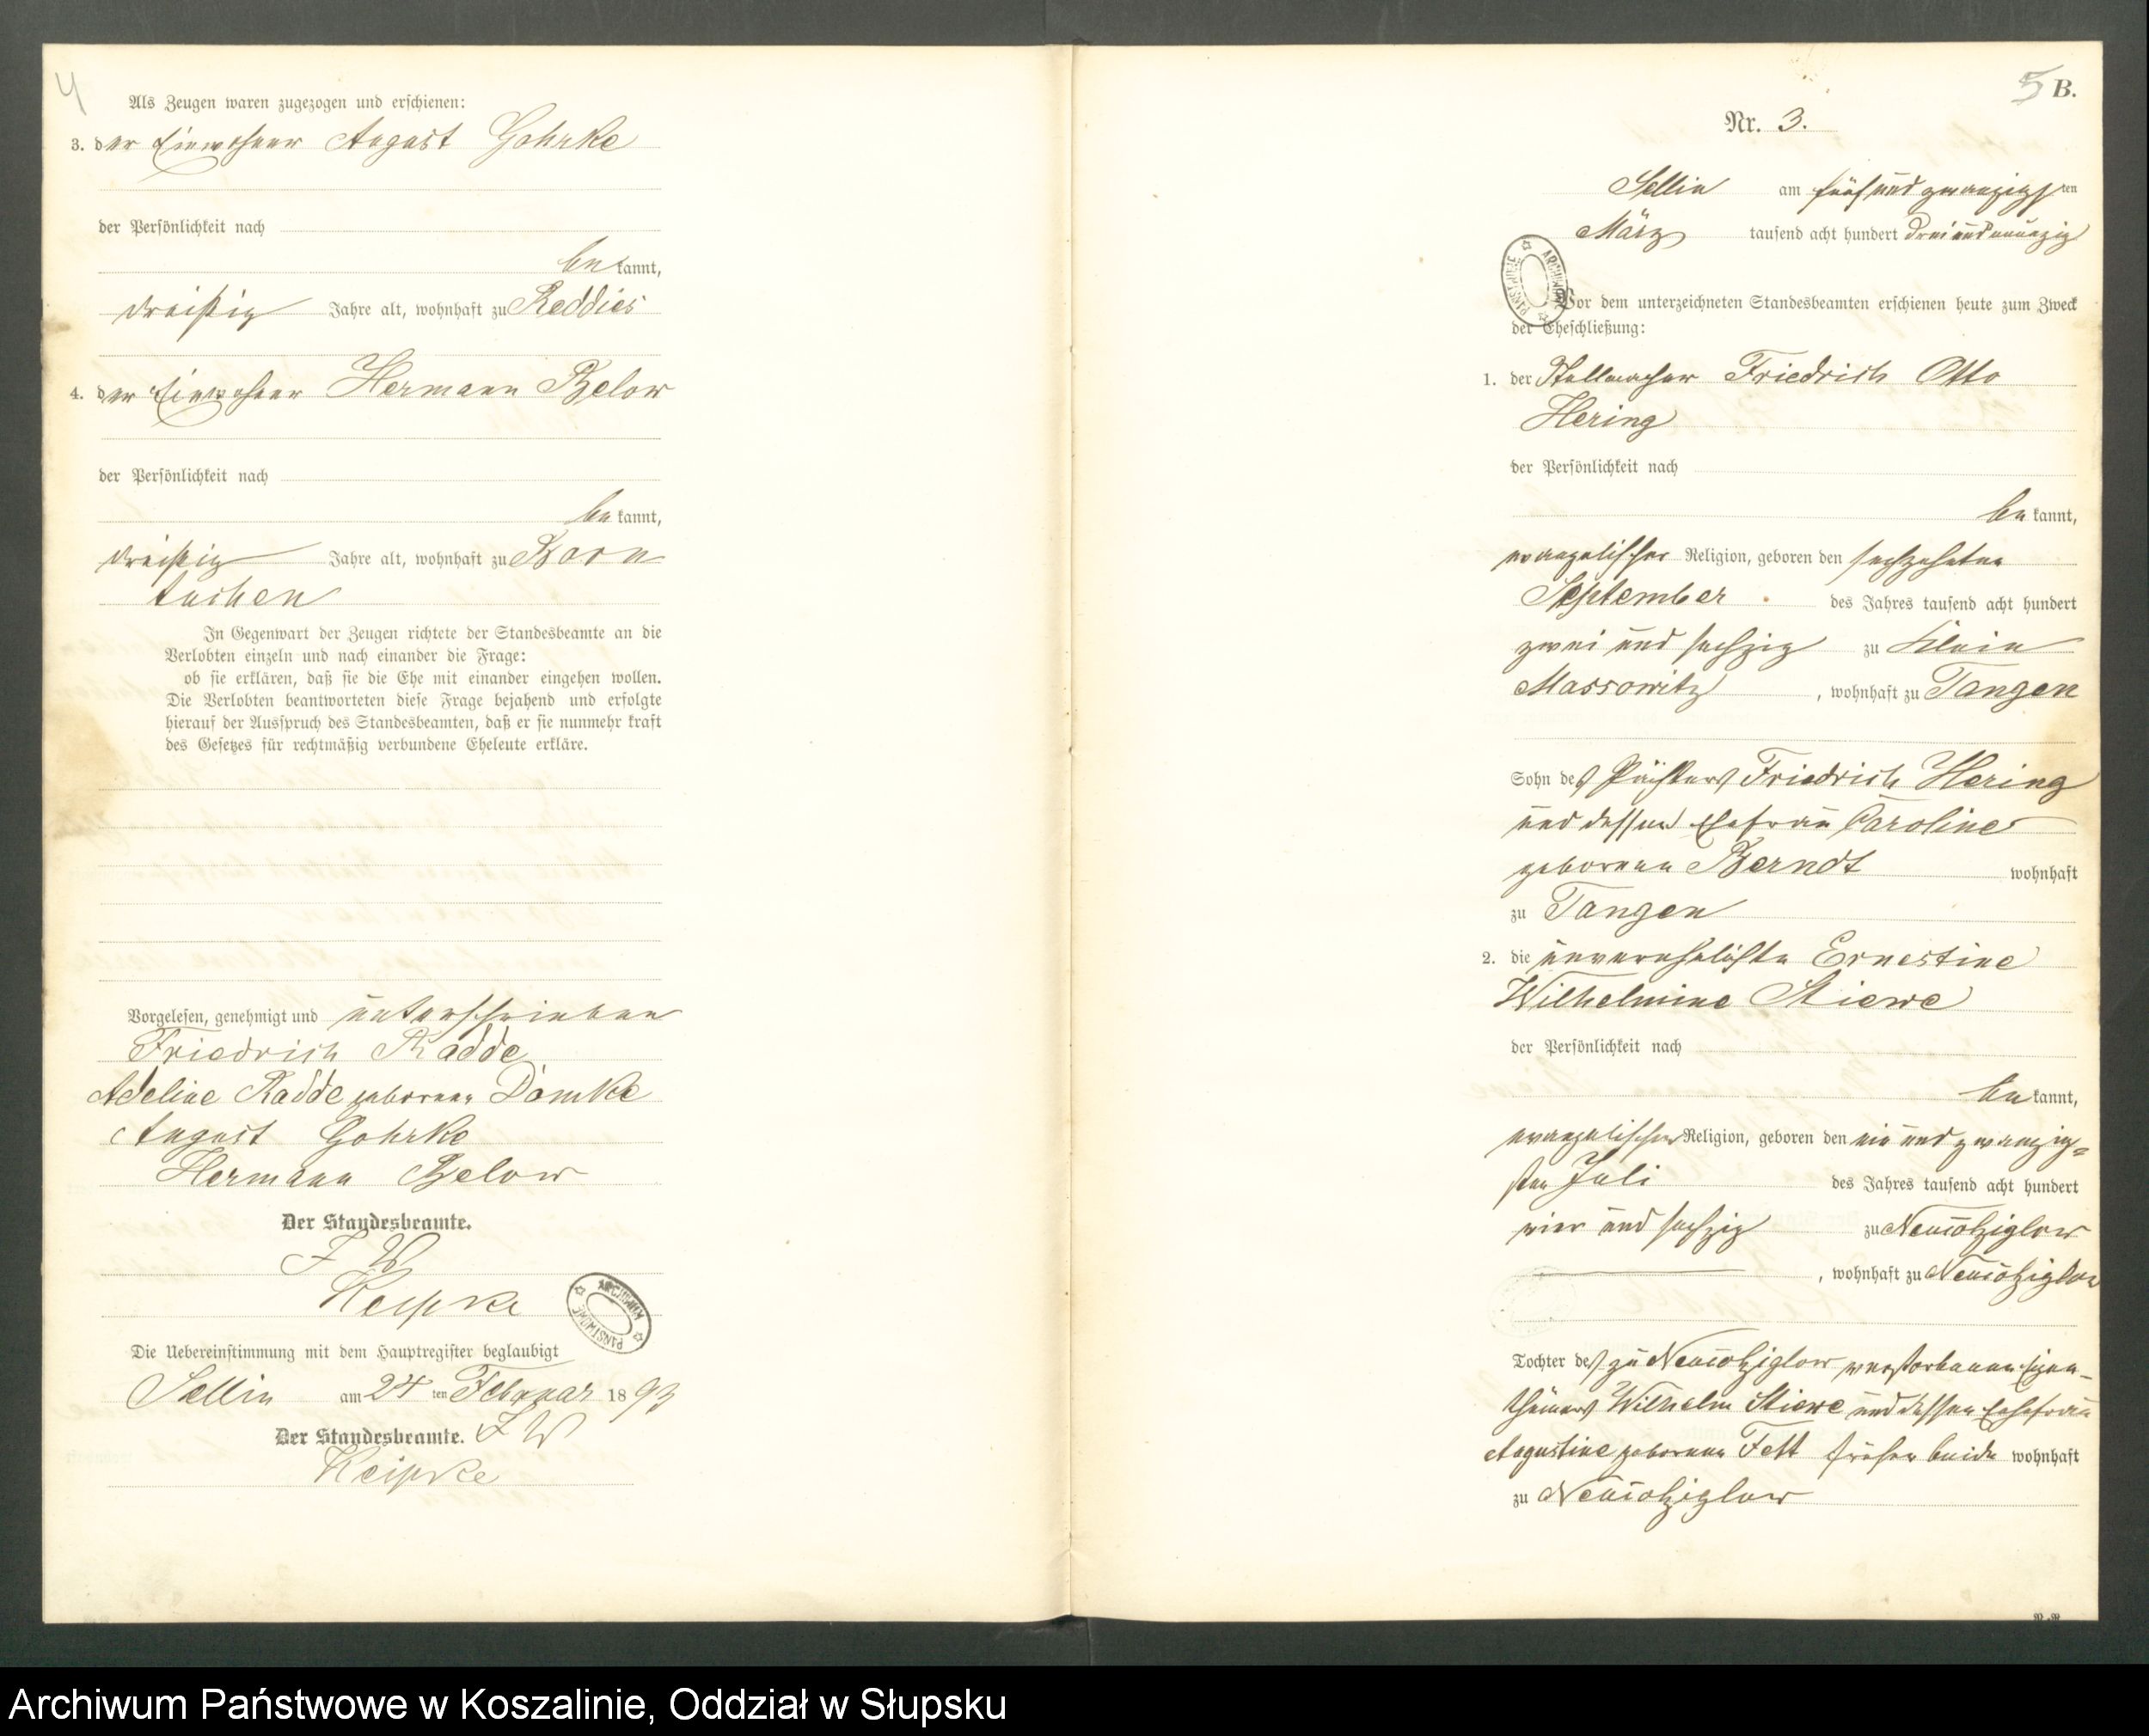 4
Als Zeugen waren zugezogen und erschienen:
3. der Einwohner August Gohrke
der Persönlichkeit nach
be kannt,
dreißig Jahre alt, wohnhaft zu Reddies
4. der Einwohner Hermann Below
der Persönlichkeit nach
be kannt,
dreißig Jahre alt, wohnhaft zu Born
tuchen
In Gegenwart der Zeugen richtete der Standesbeamte an die
Verlobten einzeln und nach einander die Frage:
ob sie erklären, daß sie die Ehe mit einander eingehen wollen.
Die Verlobten beantworteten diese Frage bejahend und erfolgte
hierauf der Ausspruch des Standesbeamten, daß er sie nunmehr kraft
des Gesetzes für rechtmäßig verbundene Eheleute erkläre.
Vorgelesen, genehmigt und unterschrieben
Friedrich Radde
Adeline Radde geborene Domke
August Gohrke
Hermann Below
Der Standesbeamte.
Keipke
ARCHIWUM PAŃSTWOWE
Die Uebereinstimmung mit dem Hauptregister beglaubigt
Sellin am 24 ten Februar 18 93
Der Standesbeamte.
Keipke
5 B.
Nr. 3.
Sellin am fünf und zwanzigs ten
März tausend acht hundert drei und neunzig
ARCHIWUM PAŃSTWOWE
Vor dem unterzeichneten Standesbeamten erschienen heute zum Zweck
der Eheschließung:
1. der Stellmacher Friedrich Otto
Hering
der Persönlichkeit nach
be kannt,
evangelischer Religion, geboren den sechzehnten
September des Jahres tausend acht hundert
zwei und sechzig zu Klein
Massowitz , wohnhaft zu Tangen
Sohn des Pächters Friedrich Hering
und dessen Ehefrau Caroline
geborene Berndt wohnhaft
zu Tangen
2. die unverehelichte Ernestine
Wilhelmine Stiewe
der Persönlichkeit nach
be kannt,
evangelischer Religion, geboren den ein und zwanzig=
sten Juli des Jahres tausend acht hundert
vier und sechzig zu
, wohnhaft zu
Tochter des zu verstorbenen Eigen-
thümers Wilhelm Stiewe und dessen Ehefrau
Augustine geborene Fett früher beide wohnhaft
zu
Archiwum Państwowe w Koszalinie, Oddział w Słupsku